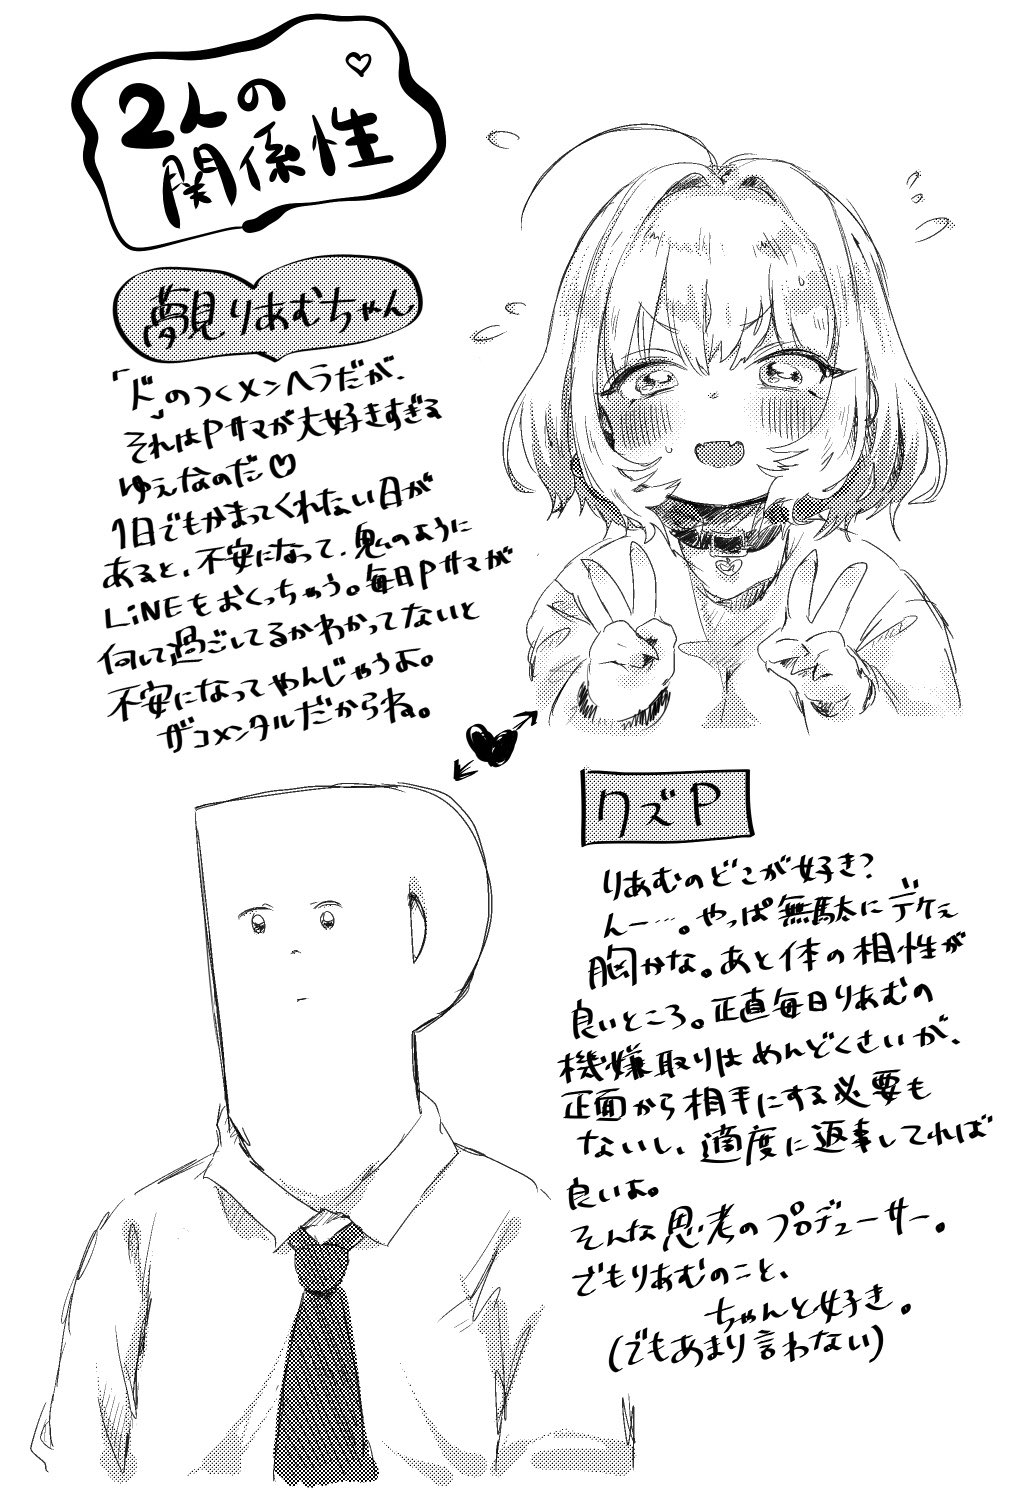 2人の
関係性
夢見りあむちゃん
「ド」のつくメンヘラだが、
それはPサマが大好きすぎる
ゆえなのだ♡
1日でもかまってくれない日が
あると、不安になって、鬼のように
LiNEをおくっちゃう。毎日Pサマが
何して過ごしてるかわかってないと
不安になってやんじゃうよ。
ザコメンタルだからね。
クズP
りあむのどこが好き?
んー…。やっぱ無駄にデケぇ
胸かな。あと体の相性が
良いところ。正直毎日りあむの
機嫌取りはめんどくさいが、
正面から相手にする必要も
ないし、適度に返事してれば
良いよ。
そんな思考のプロデューサー。
でもりあむのこと、
ちゃんと好き。
(でもあまり言わない)